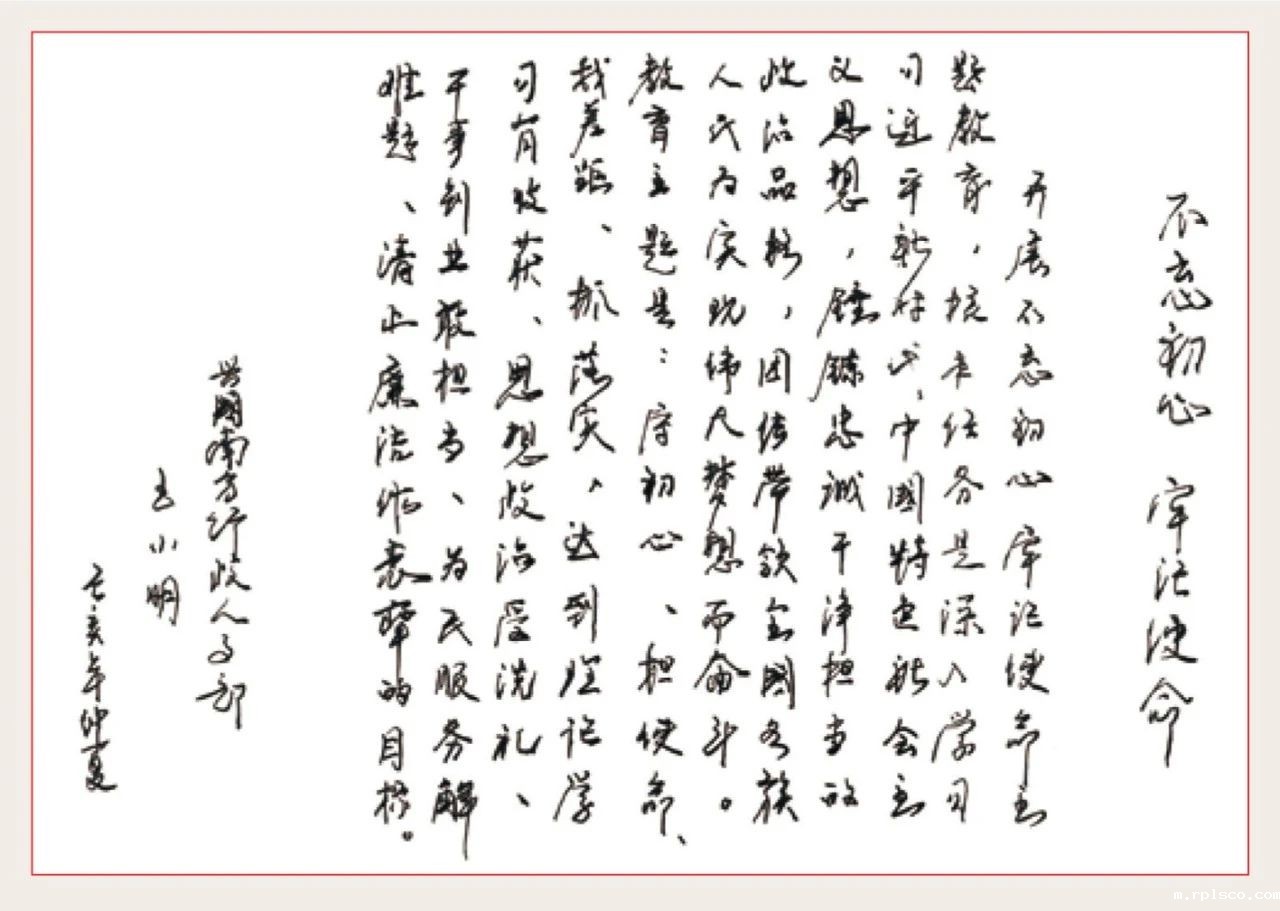 不忘初心 牢记使命
开展不忘初心牢记使命主
题教育，根本任务是深入学习
习近平新时代中国特色社会主
义思想，锤鍊忠诚干净担当的
政治品格，团结带领全国各族
人民为实现伟大梦想而奋斗。
教育主题是：守初心、担使命、
找差距、抓落实，达到理论学
习有收获、思想政治受洗礼、
干事创业敢担当、为民服务解
难题、清正廉洁作表率的目标。
兴国南方行政人事部
王小明
己亥年仲夏
m.rplsco.com